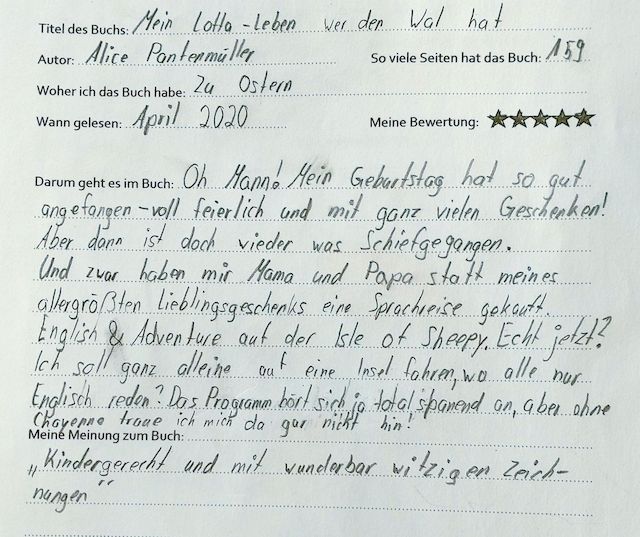 Titel des Buchs: Mein Lotta-Leben wer den Wal hat
Autor: Alice Pantermüller So viele Seiten hat das Buch: 159
Woher ich das Buch habe: Zu Ostern
Wann gelesen: April 2020 Meine Bewertung: ★★★★★
Darum geht es im Buch: Oh Mann! Mein Geburtstag hat so gut
angefangen - voll feierlich und mit ganz vielen Geschenken!
Aber dann ist doch vieder was Schiefgegangen.
Und zwar haben mir Mama und Papa statt meines
allergrößten Lieblingsgeschenks eine Sprachreise gekauft.
English & Adventure auf der Isle of Sheepy. Echt jetzt?
Ich soll ganz alleine auf eine Insel fahren, wo alle nur
Englisch reden? Das Programm hört sich ja total spanend an, aber ohne
Chayenne traue ich mich da gar nicht hin!
Meine Meinung zum Buch:
„Kindergerecht und mit wunderbar witzigen Zeich-
nungen"